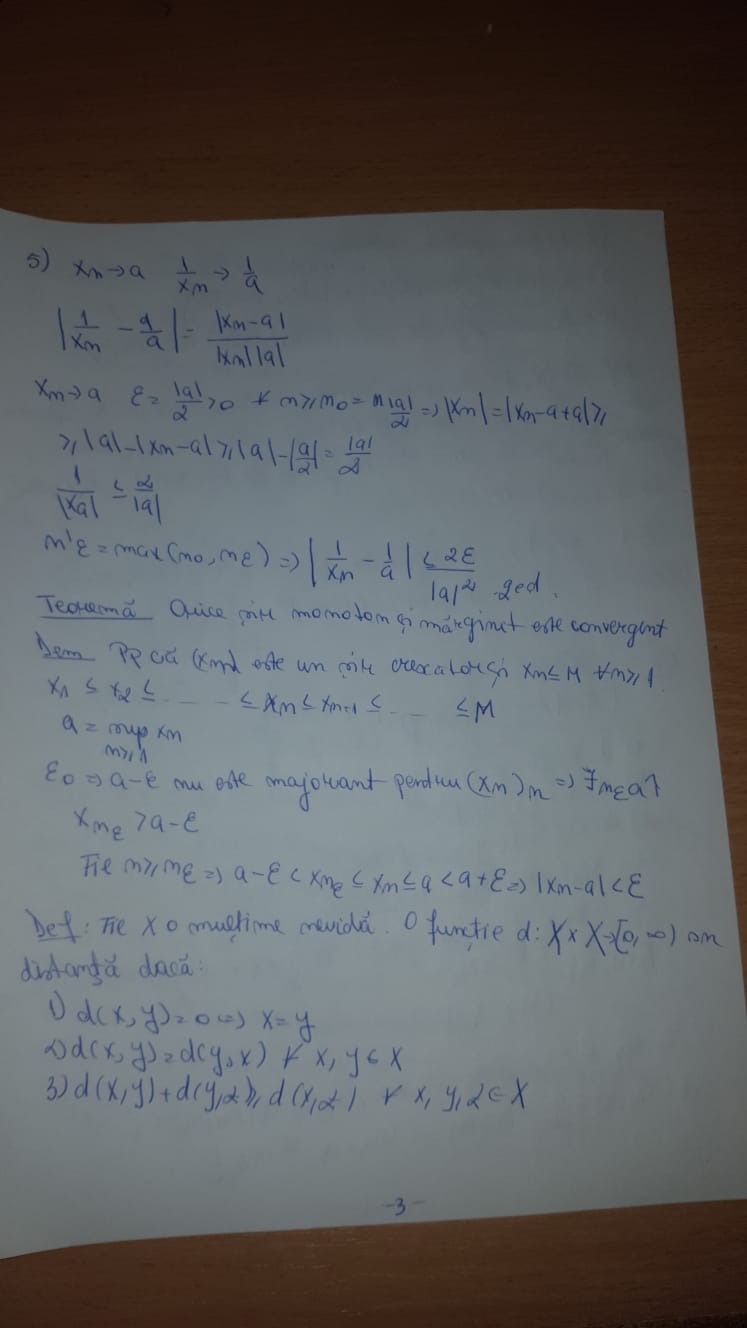 5) xn→a 1/xn → 1/a
|1/xn - 1/a| = |xn-a| / |xn||a|
xn→a ε = |a|/2 >0 ∀ n≥n0 = n|a|/2 => |xn| = |xn-a+a| ≥
≥ |a|-|xn-a| ≥ |a|-|a/2| = |a|/2
1/|xa| ≤ 2/|a|
n'ε = max(n0, nε) => |1/xn - 1/a| ≤ 2ε/|a|² qed.
Teoremă Orice șir monoton și mărginit este convergent
Dem PP că (xn) este un șir crescator și xn≤M ∀n≥1
x1 ≤ x2 ≤ ..... ≤ xn ≤ xn+1 ≤ ..... ≤M
a = sup xn
n≥1
ε0 => a-ε nu este majorant pentru (xn)n => ∃nε aî
xnε > a-ε
Fie n≥nε => a-ε < xnε ≤ xn ≤ a < a+ε => |xn-a| < ε
Def: Fie X o mulțime nevidă. O funcție d: X x X→[0,∞) sn
distanță dacă:
1) d(x,y)=0 => x=y
2) d(x,y)=d(y,x) ∀ x,y∈X
3) d(x,y)+d(y,z) ≥ d(x,z) ∀ x,y,z∈X
-3-